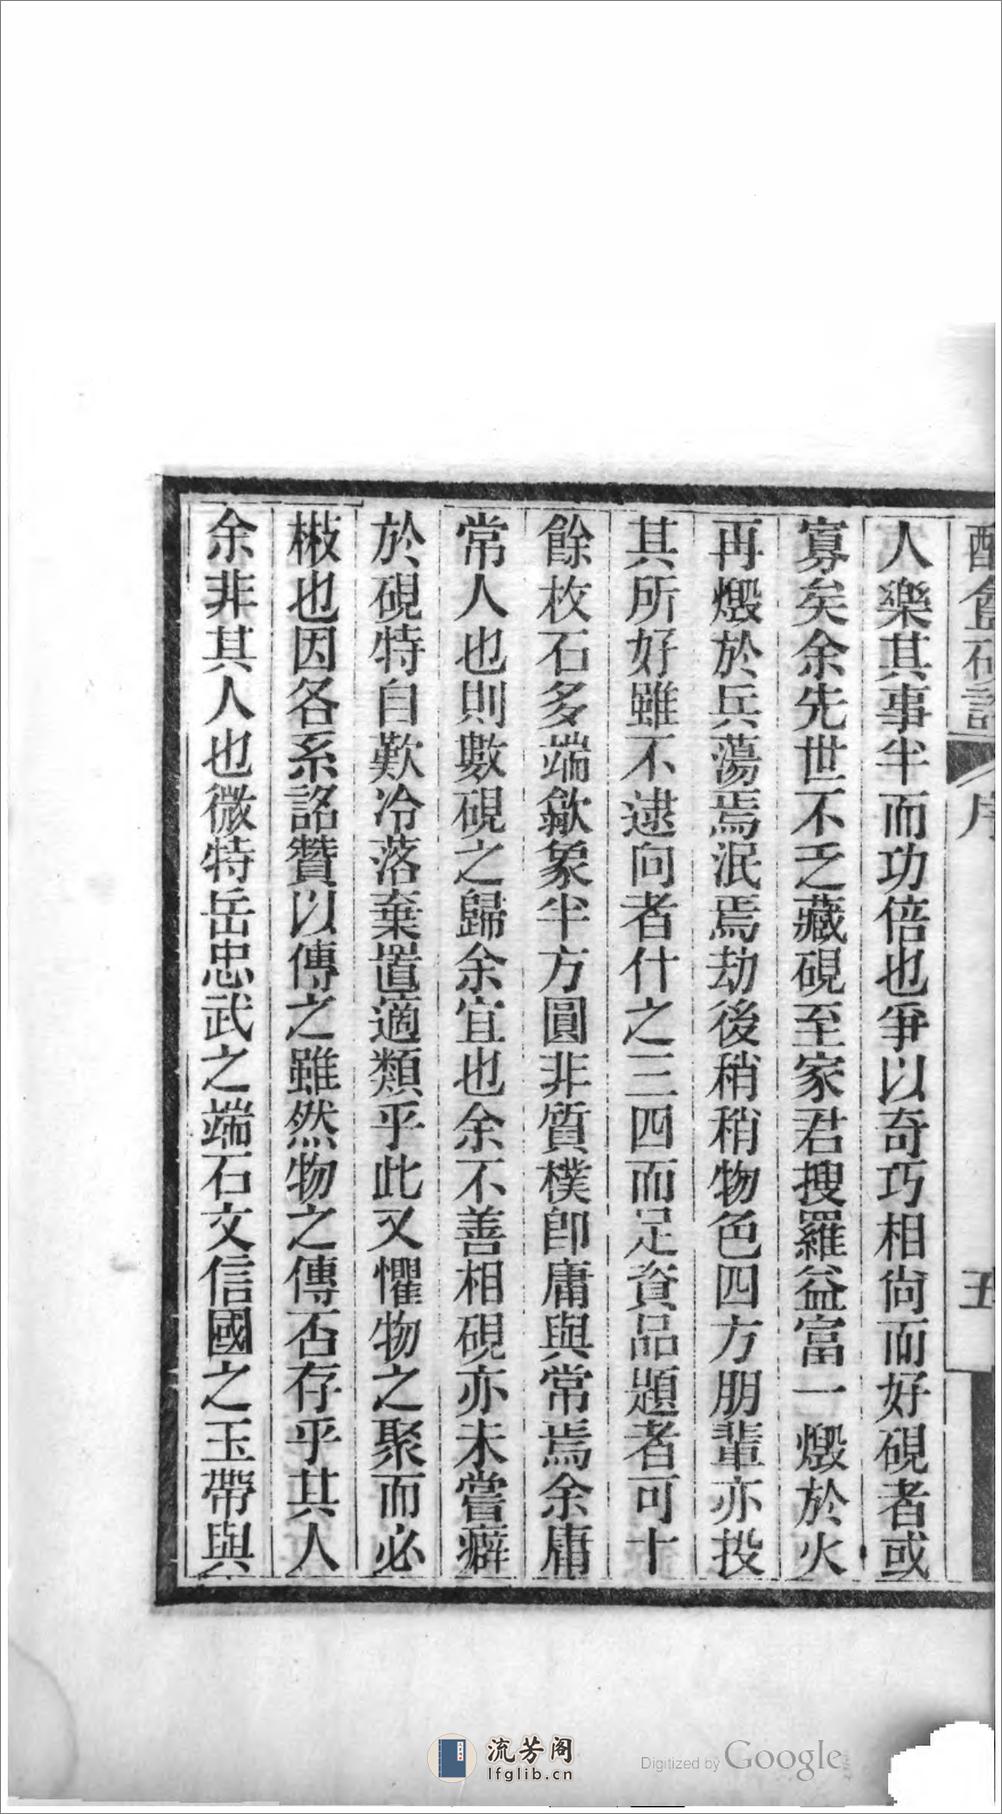 序
五
人樂其事半而功倍也爭以奇巧相尙而好硯者或
寡矣余先世不乏藏硯至家君搜羅益富一燬於火
再燬於兵蕩焉泯焉劫後稍稍物色四方朋輩亦投
其所好雖不逮向者什之三四而足資品題者可十
餘枚石多端歙象半方圓非質樸卽庸與常焉余庸
常人也則數硯之歸余宜也余不善相硯亦未嘗癖
於硯特自歎冷落棄置適類乎此又懼物之聚而必
㪚也因各系銘贊以傳之雖然物之傳否存乎其人
余非其人也微特岳忠武之端石文信國之玉帶與
流芳阁
lfglib.cn
Digitized by Google